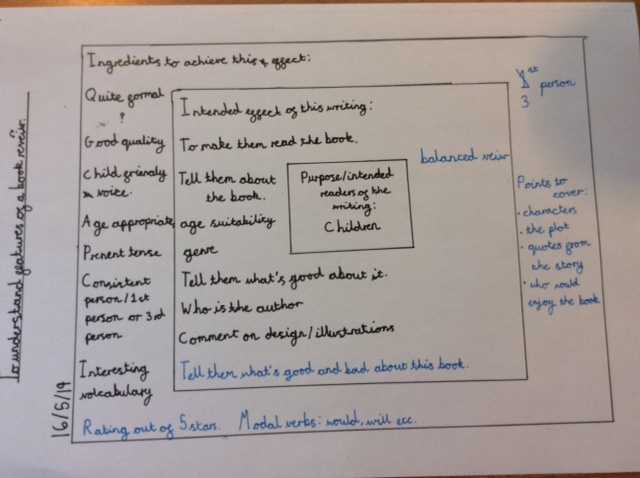 To understand features of a book reveiw.
16/5/19
Ingredients to achieve this effect:
Quite formal
?
Good quality
Child frienaly
voice.
Age appropriate
Present tense
Consistent
person/1st
person or 3rd
person
Interesting
volcabulary
Rating out of 5 stars. Modal verbs: would, will etc.
Intended effect of this writing:
To make them read the book.
Tell them about
the book.
age suitability
genre
Tell them what's good about it.
Who is the author
Comment on design/illustrations
Tell them what's good and bad about this book.
balanced veiw
Purpose/intended
readers of the
writing:
Children
1st
person
3
Points to
cover:
• characters
• the plot
• quotes from
the story
• who would
enjoy the book